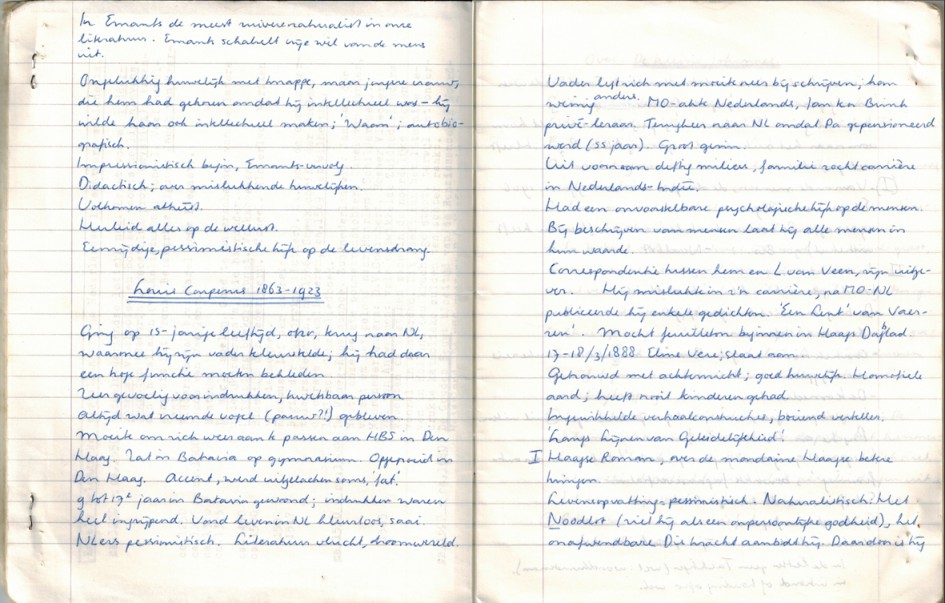 In Emants de meest zuivere naturalist in onze
literatuur. Emants schakelt vrije wil van de mens
uit.
Ongelukkig huwelijk met knappe, maar jongere vrouw,
die hem had gekozen omdat hij intellectueel was - hij
wilde haar ook intellectueel maken; 'Waan'; autobio-
grafisch.
Impressionistisch begin, Emants-
Didactisch; over mislukkende huwelijken.
Volkomen atheïst.
Herleid alles op de wellust.
Eenzijdige, pessimistische kijk op de levensdrang.
Louis Couperus 1863-1923
Ging op 15-jarige leeftijd, terug naar NL,
waarmee hij zijn vader teleurstelde; hij had daar
een hoge functie moeten bekleden
Zeer gevoelig voor indrukken, kwetsbaar persoon
Altijd wat vreemde vogel (pauw?!) gebleven.
Moeite om zich weer aan te passen aan HBS in Den
Haag. Zat in Batavia op gymnasium. Opgegroeid in
Den Haag. Accent, werd uitgelachen soms, 'fat'.
9 tot 17e jaar in Batavia gewoond; indrukken waren
heel ingrijpend. Vond leven in NL kleurloos, saai.
NLers pessimistisch. Literatuur vlucht, droomwereld.
Vader legt zich met moeite neer bij schrijven; kon
weinig anders. MO-akte Nederlands, Jan ten Brink
privé-leraar. Terugkeer naar NL omdat Pa gepensioneerd
werd (55 jaar). Groot gezin.
Uit voornaam deftig milieu, familie zocht carrière
in Nederlands-Indië.
Had een onvoorstelbare psychologische kijk op de mensen.
Bij beschrijven van mensen laat hij alle mensen in
hun waarde.
Correspondentie tussen hem en L. van Veen, zijn uitge-
ver. Hij mislukte in z'n carrière, na MO-NL
publiceerde hij enkele gedichten. 'Een Lent' van Vaer-
zen'. Mocht feuilleton beginnen in Haags Dagblad
17-18/3/1888 Eline Vere; slaat aan.
Getrouwd met achternicht; goed huwelijk. Homofiele
aard; heeft nooit kinderen gehad.
Ingewikkelde verhaalconstructies, boeiend verteller.
'Langs Lijnen van Geleidelijkheid'.
I Haagse Roman, over de mondaine Haagse betere
kringen.
Levensopvatting pessimistisch. Naturalistisch: Het
Noodlot (ziet hij als een onpersoonlijke godheid), het
onafwendbare Die kracht aanbidt hij. Daardoor is hij